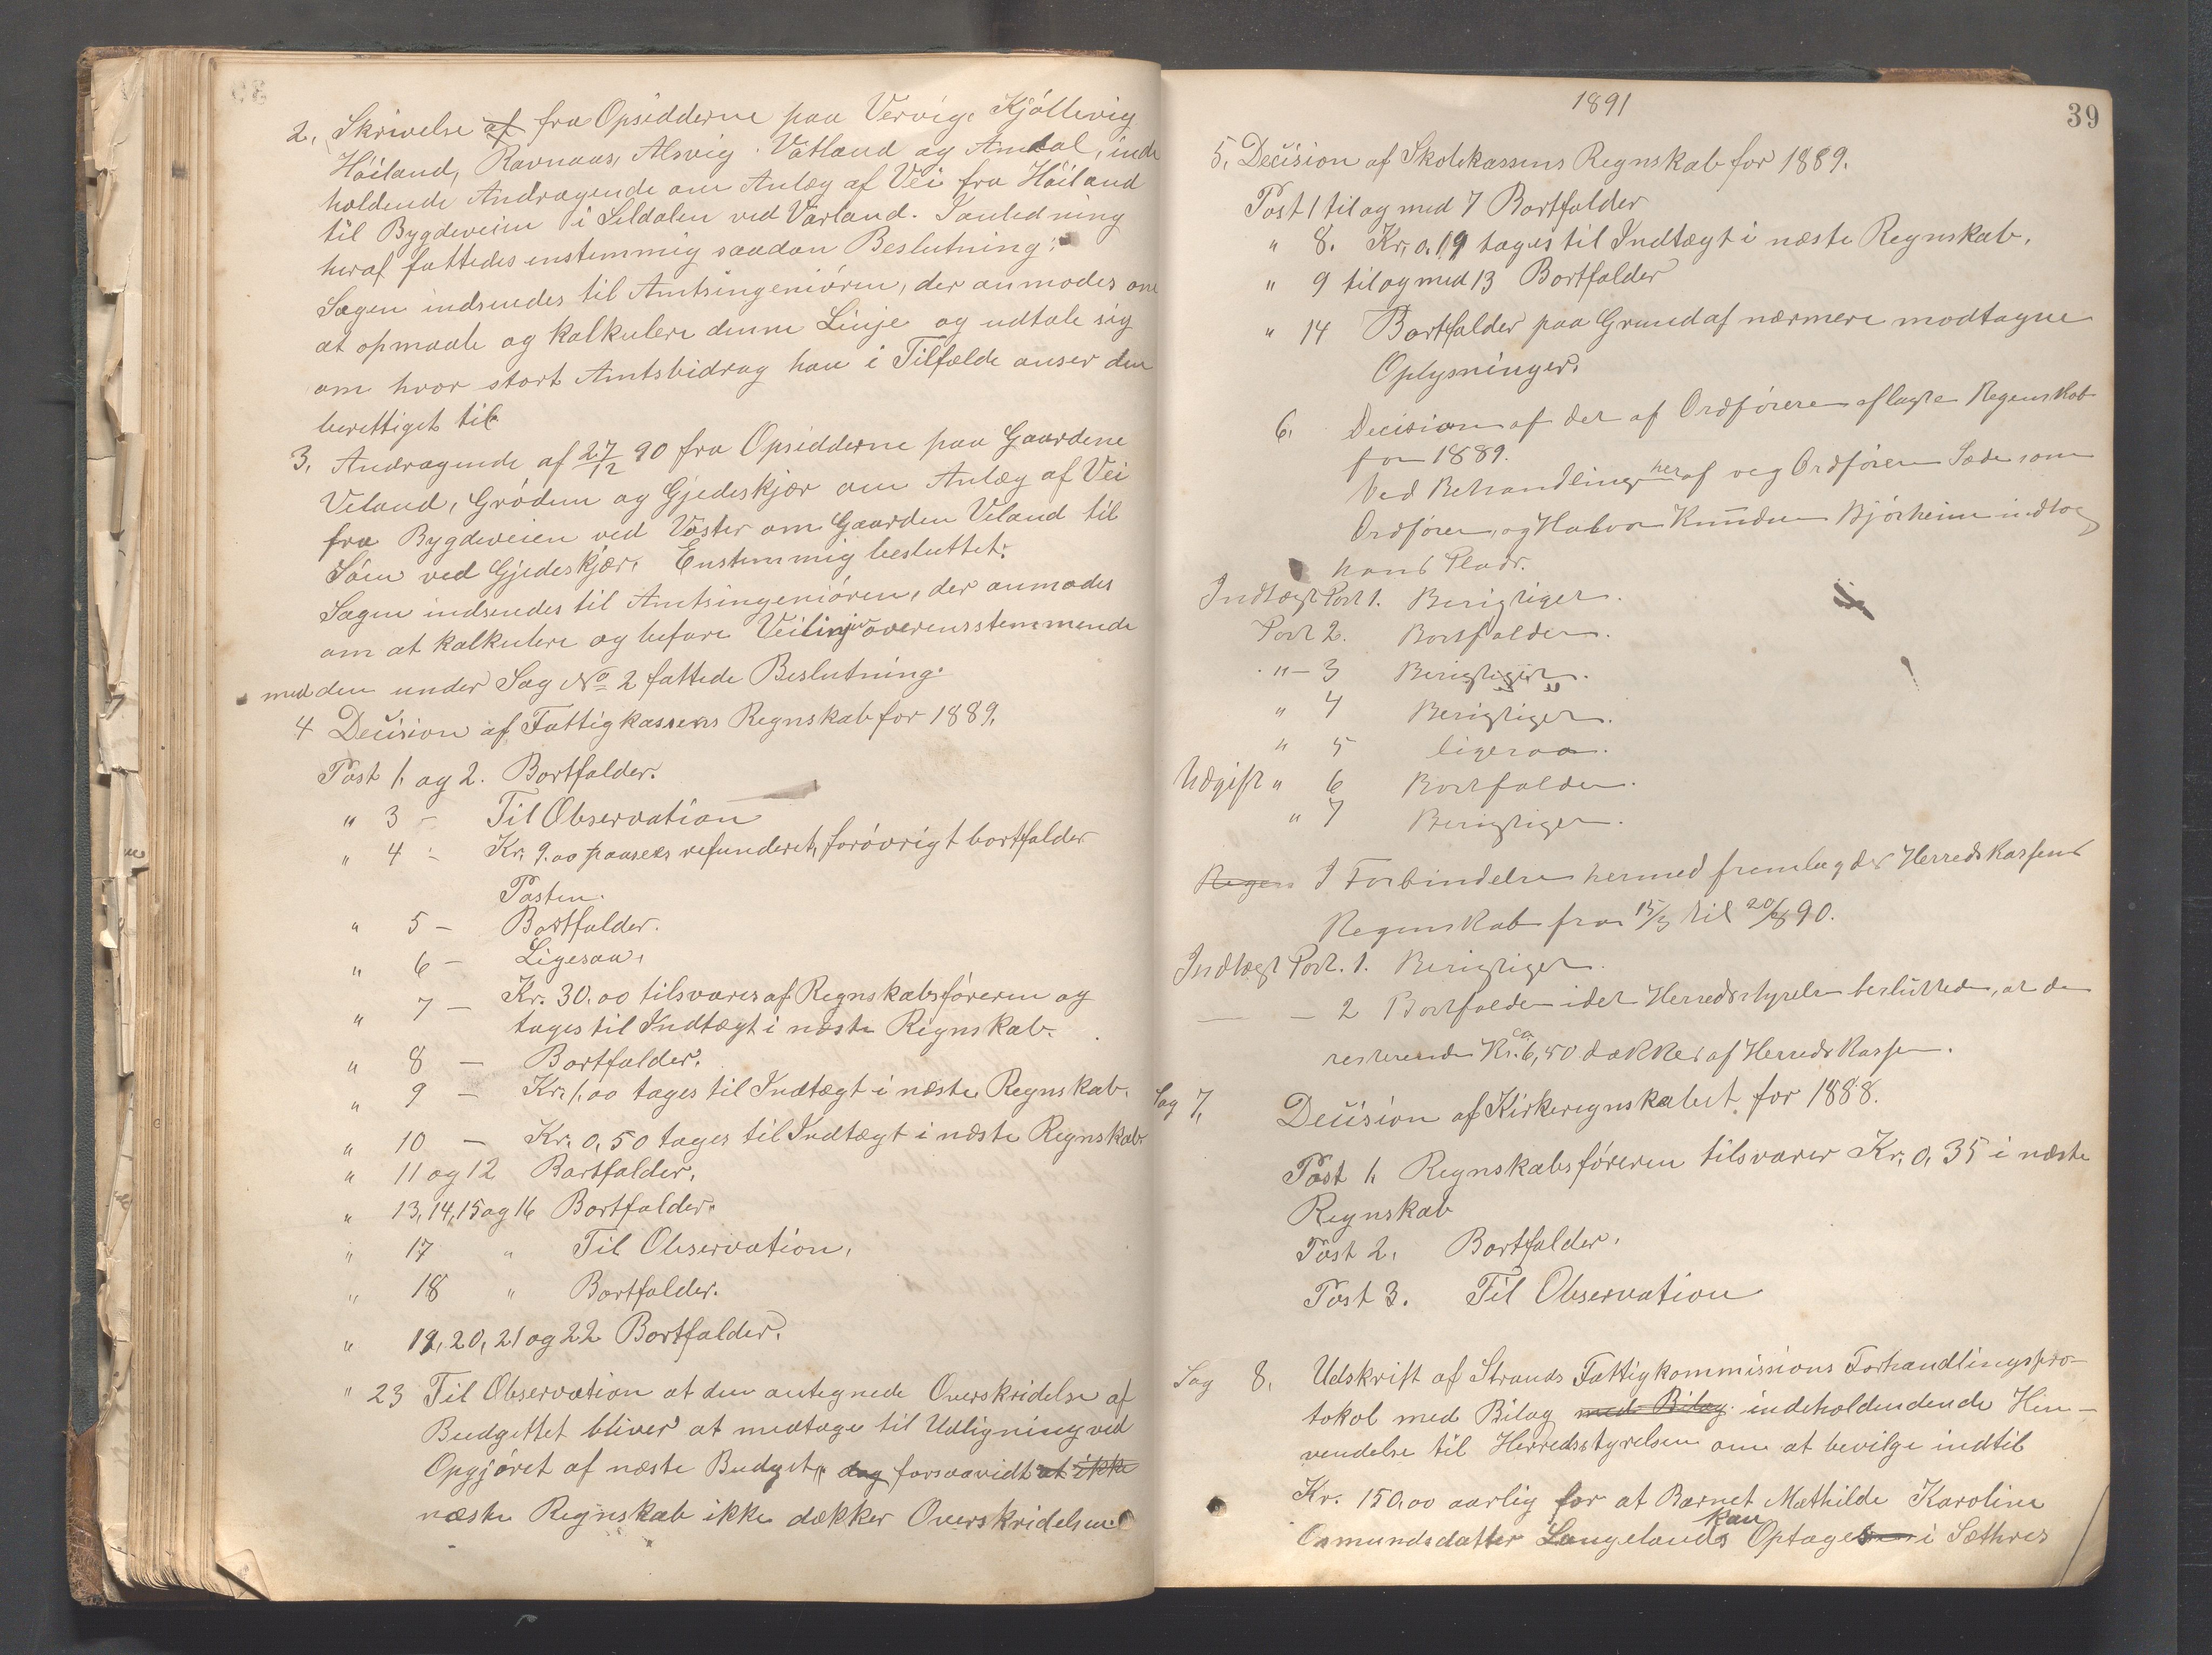 2. Skrivelse af fra Opsidderne paa Vervig, Kjøllevig
Høiland, Ravnaas, Alsvig Vatland og Amdal, inde
holdende Andragende om Anlæg af Vei fra Høiland
til Bygdeveien i Seldalen ved Varland. I anledning
heraf fattedes enstemmig saadan Beslutning:
Sagen indsendes til Amtsingeniøren, der anmodes om
at opmaale og kalkulere denne Linje og udtale sig
om hvor stort Amtsbidrag han i Tilfælde anser den
berettiget til
3. Andragende af 27/12 90 fra Opsidderne paa Gaardene
Veland, Grødem og Gjedeskjær om Anlæg af Vei
fra Bygdeveien ved Vaster om Gaarden Veland til
Søen ved Gjedeskjær. Enstemmig besluttet:
Sagen indsendes til Amtsingeniøren, der anmodes
om at kalkulere og befare Veilinjer overensstemmende
med den under Sag No 2 fattede Beslutning.
4 Decision af Fattigkassens Regnskab for 1889.
Post 1. og 2. Bortfalder.
" 3 - Til Observation
" 4 - Kr. 9.00 paasees refunderet, forøvrigt bortfalder
Posten.
" 5 - Bortfalder.
" 6 - Ligesaa.
" 7 - Kr. 30.00 tilsvares af Regnskabsføreren og
tages til Indtægt i næste Regnskab.
" 8 - Bortfalder.
" 9 - Kr. 1.00 tages til Indtægt i næste Regnskab.
" 10 - Kr. 0,50 tages til Indtægt i næste Regnskab
" 11 og 12 Bortfalder.
" 13, 14, 15 og 16 Bortfalder.
" 17 " Til Observation.
" 18 " Bortfalder.
" 19, 20, 21 og 22 Bortfalder.
" 23 Til Observation at den antegnede Overskridelse af
Budgettet bliver at medtage til Udligning ved
Opgjøret af næste Budget, dog forsaavidt at ikke
næste Regnskab ikke dækker Overskridelsen.
1891
39
5. Decision af Skolekassens Regnskab for 1889.
Post 1 til og med 7 Bortfalder
" 8. Kr. 0.19 tages til Indtægt i næste Regnskab.
" 9 til og med 13 Bortfalder
" 14 Bortfalder paa Grund af nærmere modtagne
Oplysninger.
6. Decision af det af Ordføreren aflagte Regenskab
for 1889.
Ved Behandlingen heraf veg Ordføreren Sæde som
Ordfører, og Halvor Knudsen Bjørheim indtog
hans Plads.
Indtægt Post 1. Berigtiget.
Post 2. Bortfalder.
" - 3 Berigtiget.
" 4 Berigtiget.
" 5 ligesaa.
Udgift " 6 Bortfalder.
" 7 Berigtiget.
Regens I Forbindelse hermed fremlagdes Herredskassens
Regenskab fra 15/3 til 20/8 90.
Indtægt Post. 1. Berigtiget.
— — 2 Bortfalder idet Herredsstyrelsen besluttede, at de
resterende Kr. ca 6,50 dækkes af Herredskassen.
Sag 7. Decision af Kirkeregnskabet for 1888.
Post 1. Regnskabsføreren tilsvarer Kr. 0,35 i næste
Regnskab
Post 2. Bortfalder.
Post 3. Til Observation
Sag 8. Udskrift af Strands Fattigkommissions Forhandlingspro-
tokol med Bilag med Bilag indeholdendende Hen-
vendelse til Herredsstyrelsen om at bevilge indtil
Kr. 150.00 aarlig for at Barnet Mathilde Karoline
Osmundsdatter Langelands kan Optages i Sæthres